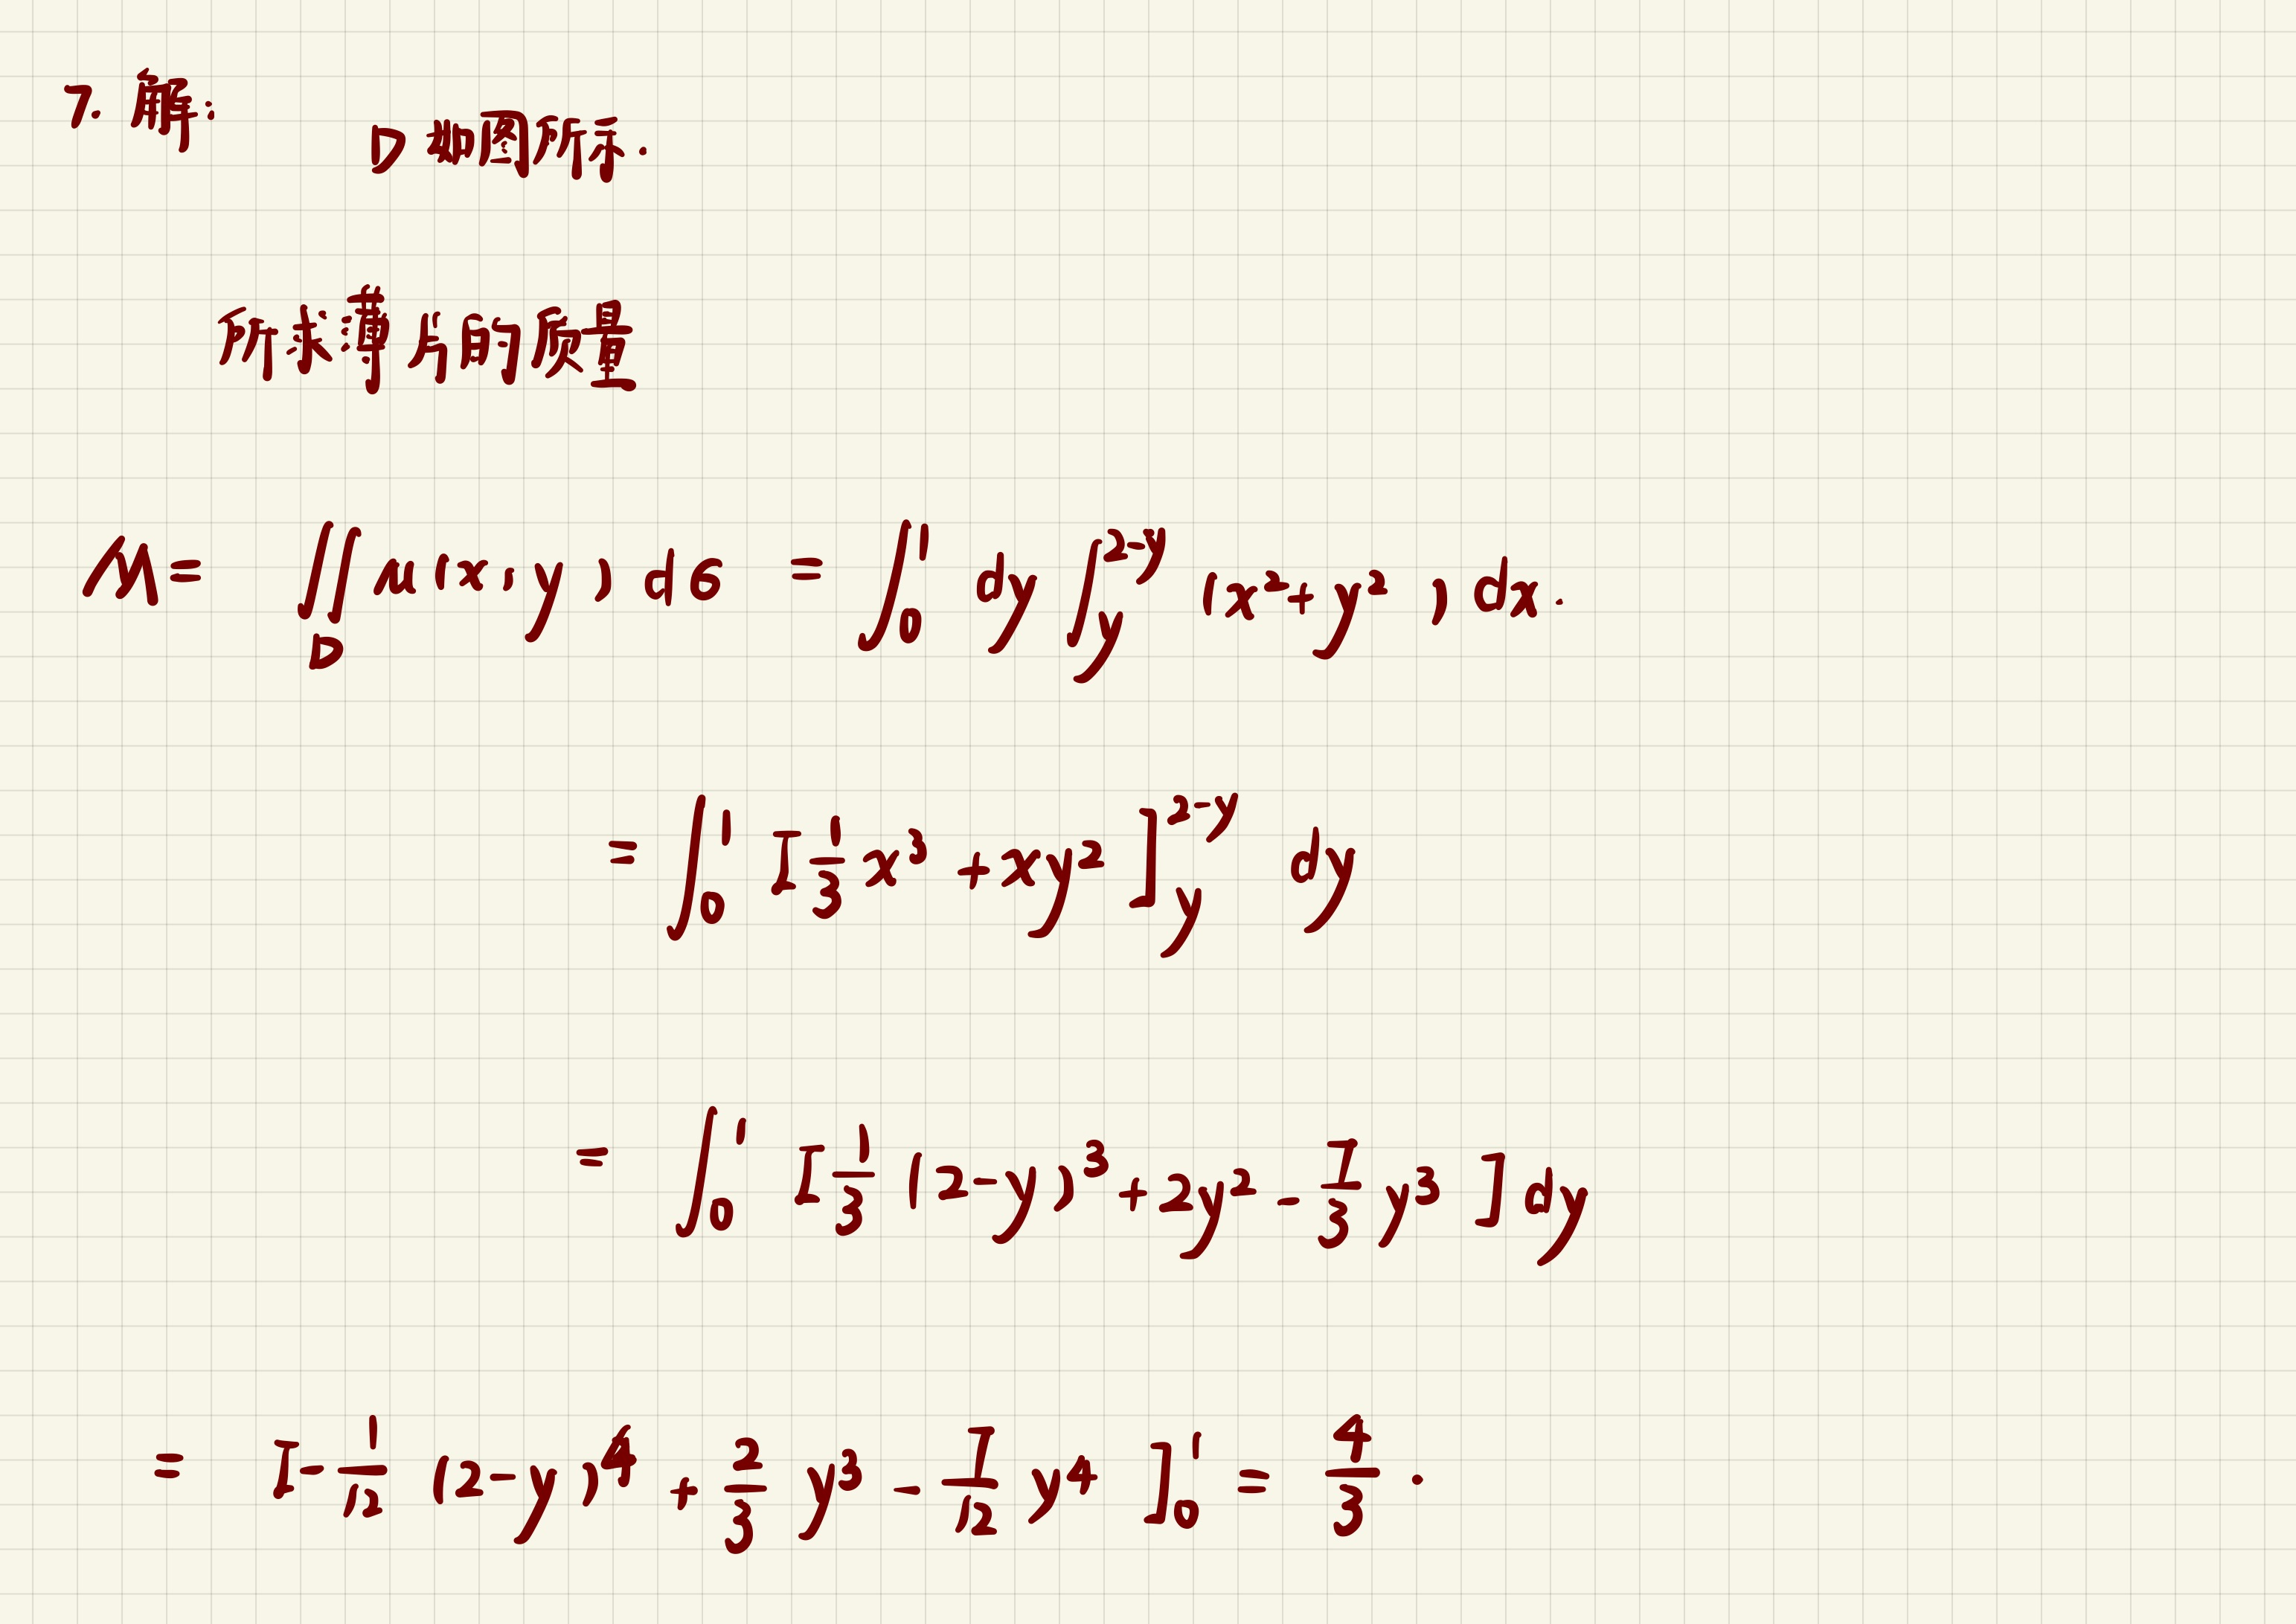 7. 解:
D 如图所示.
所求薄片的质量
M = ∬_D μ(x, y) dσ = ∫_0^1 dy ∫_y^{2-y} (x² + y²) dx.
= ∫_0^1 [1/3 x³ + xy²]_y^{2-y} dy
= ∫_0^1 [1/3 (2-y)³ + 2y² - 7/3 y³] dy
= [-1/12 (2-y)⁴ + 2/3 y³ - 7/12 y⁴]_0^1 = 4/3.